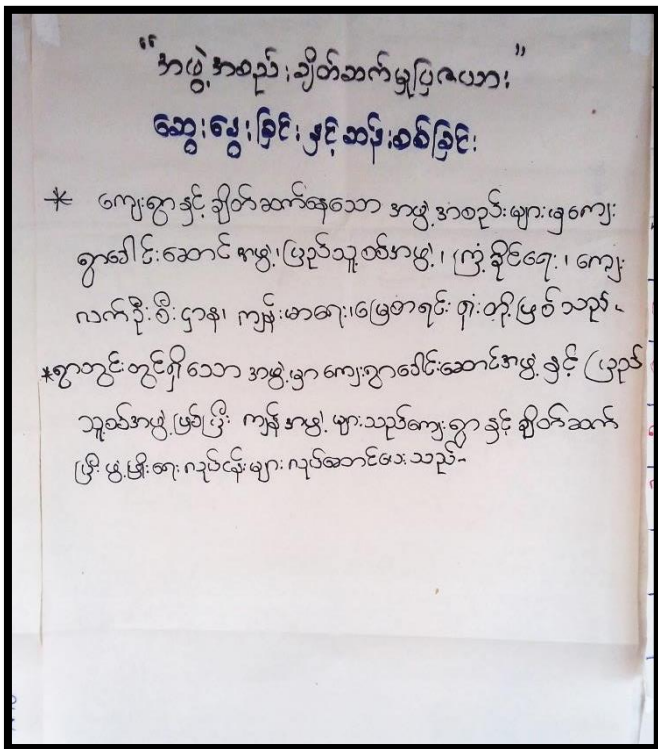 “အဖွဲ့အစည်းချိတ်ဆက်မှုပြဇယား”
ဆွေးနွေးခြင်းနှင့်ဆန်းစစ်ခြင်း
* ကျေးရွာနှင့်ချိတ်ဆက်နေသော အဖွဲ့အစည်းများမှကျေး
ရွာခေါင်းဆောင်အဖွဲ့၊ ပြည်သူ့စစ်အဖွဲ့၊ ကြံ့ခိုင်ရေး၊ ကျေး
လက်ဦးစီးဌာန၊ ကျန်းမာရေး၊ မြေစာရင်းရုံးတို့ဖြစ်သည်-
*ရွာတွင်းတွင်ရှိသော အဖွဲ့မှာကျေးရွာခေါင်းဆောင်အဖွဲ့နှင့် ပြည်
သူ့စစ်အဖွဲ့ဖြစ်ပြီး ကျန်အဖွဲ့များသည်ကျေးရွာနှင့်ချိတ်ဆက်
ပြီး ဖွံ့ဖြိုးရေးလုပ်ငန်းများလုပ်ဆောင်ပေးသည်-